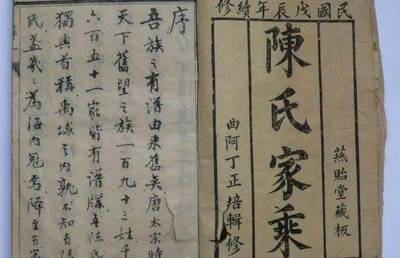 民國戊辰年續修
燕貽堂藏板
陳氏家乘
曲阿丁正培輯修
序
吾族之有譜由來舊矣唐太宗時
天下舊望之族一百九十三姓千
六百五十一家皆有譜牒陳氏
獨與首稱禹域之內孰不知有陳
氏之為海內冠焉降至有宋